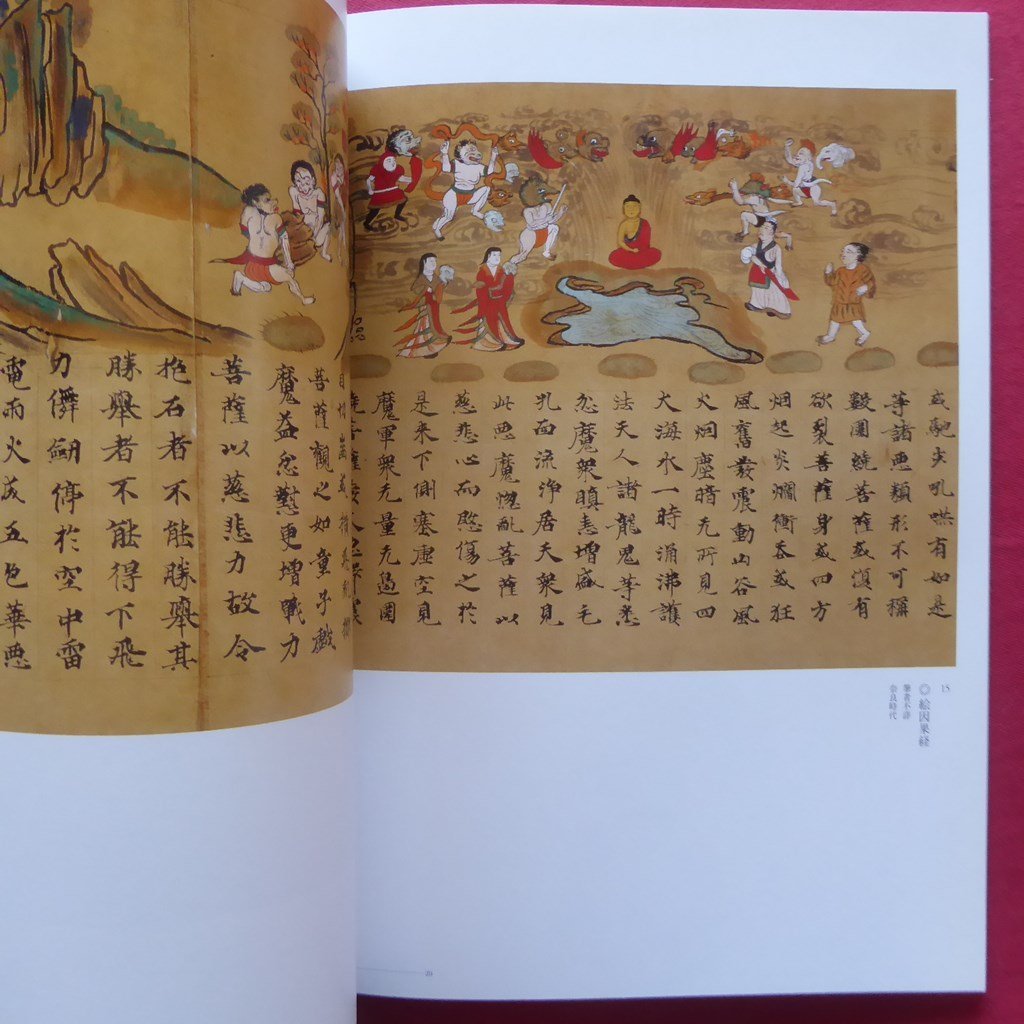 或馳走吼喚有如是
等諸悪類形不可稱
數圍繞菩薩或復有
欲裂菩薩身或四方
烟起炎爓衝天或狂
風奮發震動山谷風
火烟塵暗无所見四
大海水一時涌沸護
法天人諸龍鬼等悉
忿魔衆瞋恚增盛毛
孔血流淨居天衆見
此悪魔惱亂菩薩以
慈悲心而愍傷之於
是来下側塞虛空見
魔軍衆无量无邊圍
繞菩薩
菩薩觀之如童子戲
魔益忿懟更增戰力
菩薩以慈悲力故令
抱石者不能勝舉其
勝舉者不能得下飛
刀儛劒停於空中雷
電雨火成五色華悪
15
◎絵因果経
筆者不詳
奈良時代
29